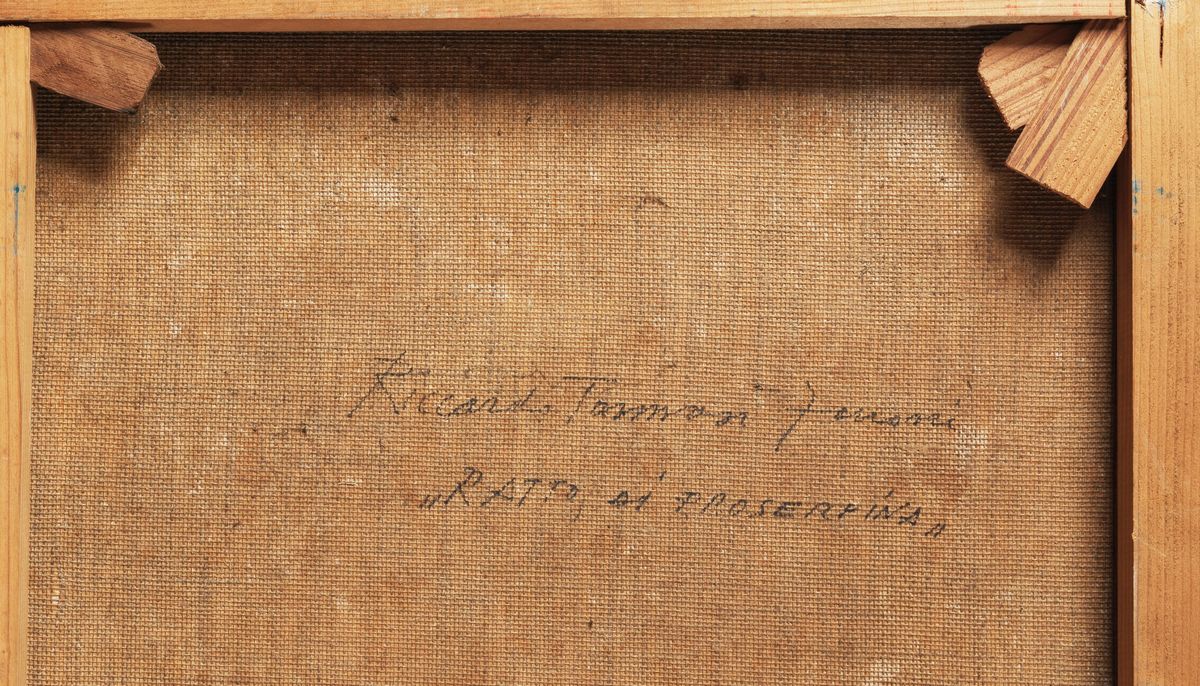 Riccardo Tommasi Ferroni
„RATTO di PROSERPINA„